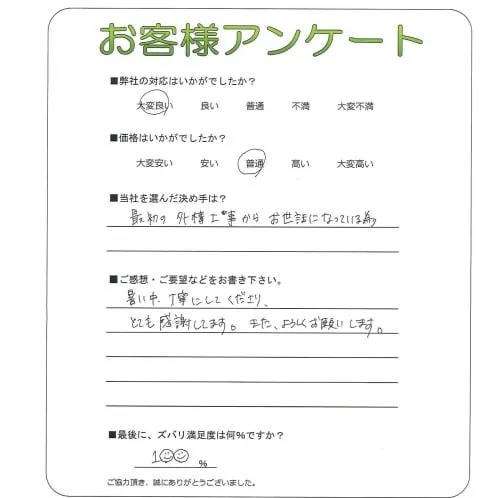 お客様アンケート
■弊社の対応はいかがでしたか？
大変良い 良い 普通 不満 大変不満
■価格はいかがでしたか？
大変安い 安い 普通 高い 大変高い
■当社を選んだ決め手は？
最初の外構工事からお世話になっている為
■ご感想・ご要望などをお書き下さい。
暑い中、丁寧にしてくださり、
とても感謝してます。また、よろしくお願いします。
■最後に、ズバリ満足度は何％ですか？
100 ％
ご協力頂き、誠にありがとうございました。